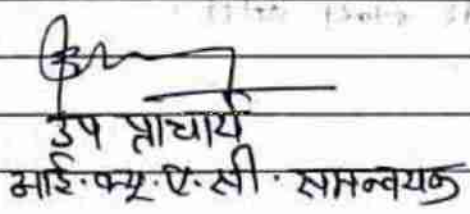 उप प्राचार्य
आई.क्यू.ए.सी. समन्वयक